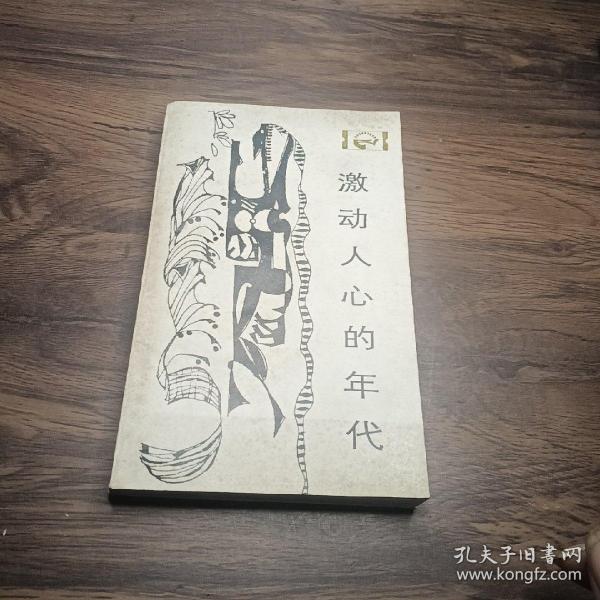 激动人心的年代
孔夫子旧書网
www.kongfz.com